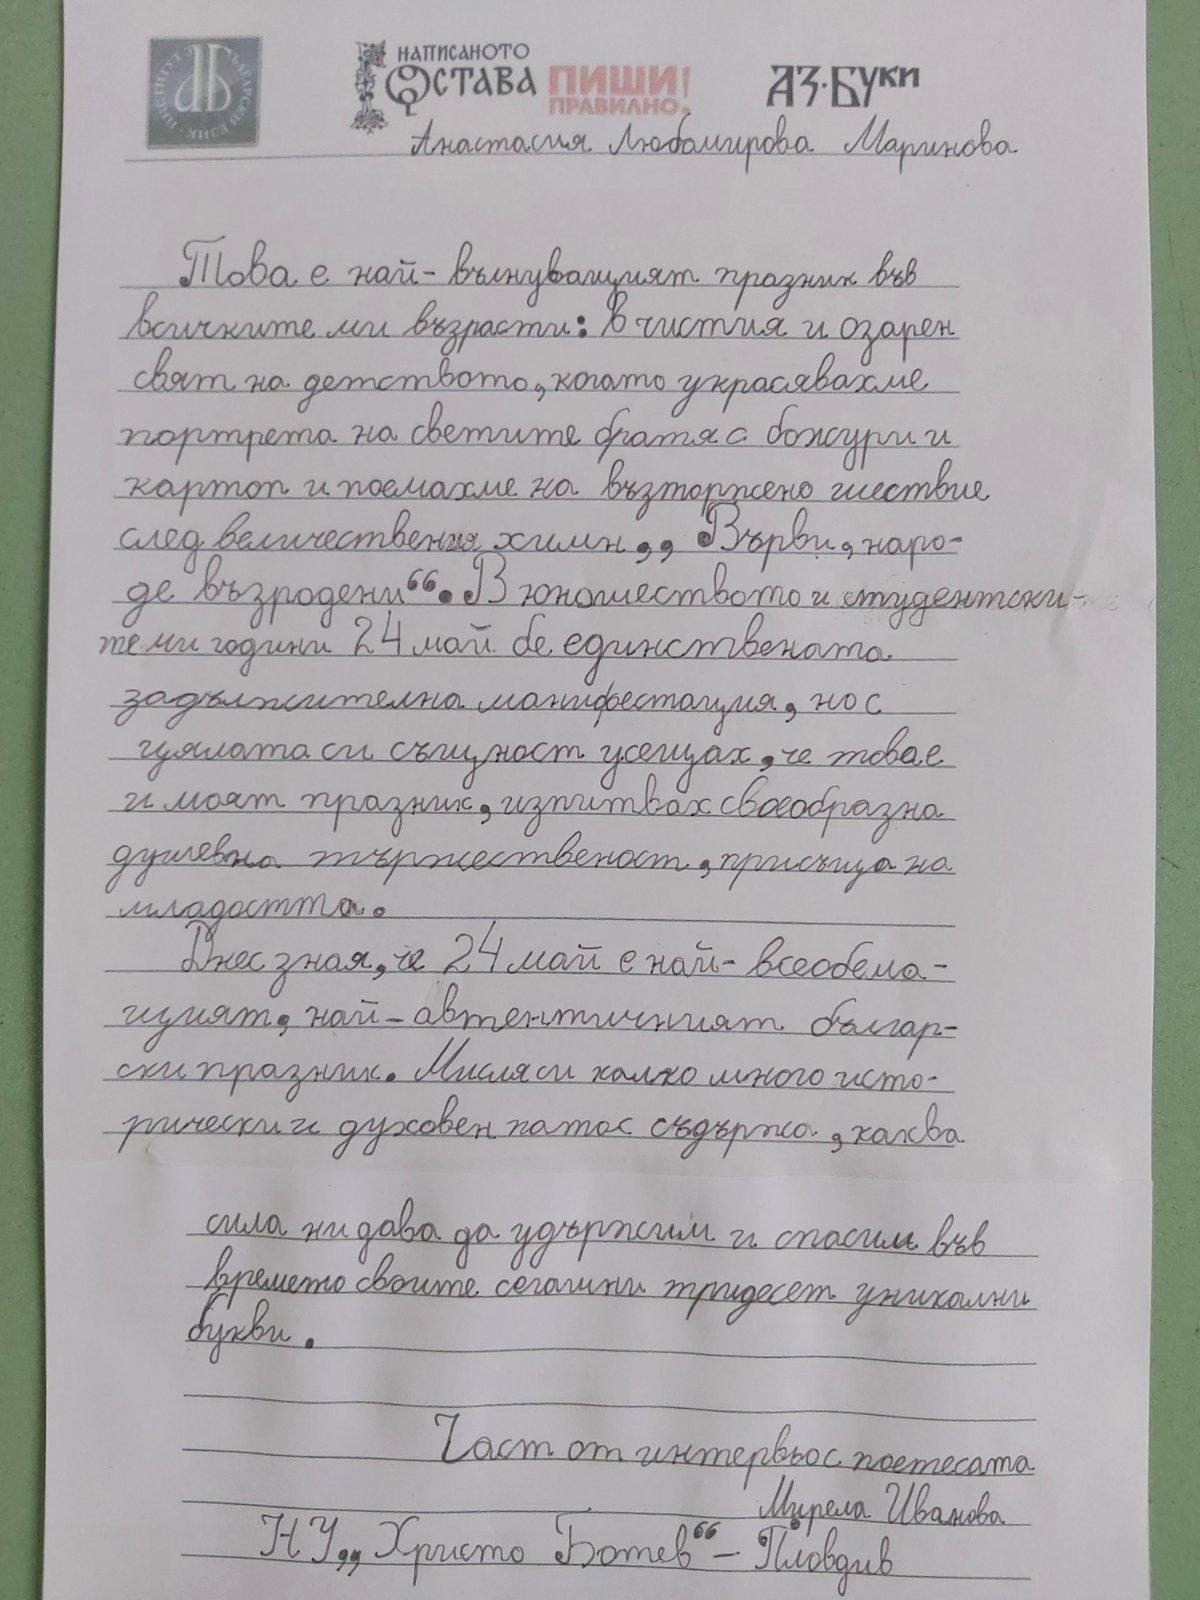 ИНСТИТУТ ЗА БЪЛГАРСКИ ЕЗИК
НАПИСАНОТО
ОСТАВА
ПИШИ
ПРАВИЛНО!
АЗ·БУКИ
Анастасия Любомирова Маринова
Това е най-вълнуващият празник във
всичките ми възрасти: в чистия и озарен
свят на детството, когато украсявахме
портрета на светите братя с божури и
картоп и поемахме на възторжено шествие
след величествения химн „Върви, наро-
де възродени“. В юношеството и студентски-
те ми години 24 май бе единствената
задължителна манифестация, но с
цялата си същност усещах, че това е
и моят празник, изпитвах своеобразна
душевна тържественост, присъща на
младостта.
Днес зная, че 24 май е най-всеобема-
щият, най-автентичният българ-
ски празник. Мисля си колко много исто-
рически и духовен патос съдържа, каква
сила ни дава да удържим и спасим във
времето своите сегашни тридесет уникални
букви.
Част от интервю с поетесата
Мирела Иванова
НУ „Христо Ботев“ – Пловдив